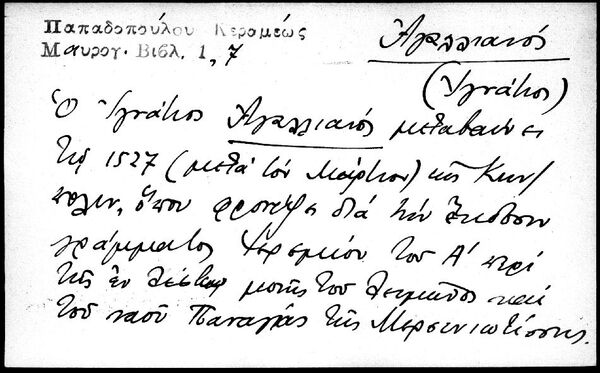 Παπαδοπούλου Κεραμέως
Μαυρογ. Βιβλ. 1, 7
Ἀγαλλιανός
(Ἰγνάτιος)
Ὁ Ἰγνάτιος Ἀγαλλιανός μεταβαίνει
τῷ 1527 (μετά τόν Μάρτιον) εἰς Κων/
πολιν, ὅπου φροντίζει διά τήν ἔκδοσιν
γράμματος Ἱερεμίου τοῦ Α' περί
τῆς ἐν Λέσβῳ μονῆς τοῦ Λειμῶνος καί
τοῦ ναοῦ Παναγίας τῆς Μυρσινιωτίσσης.